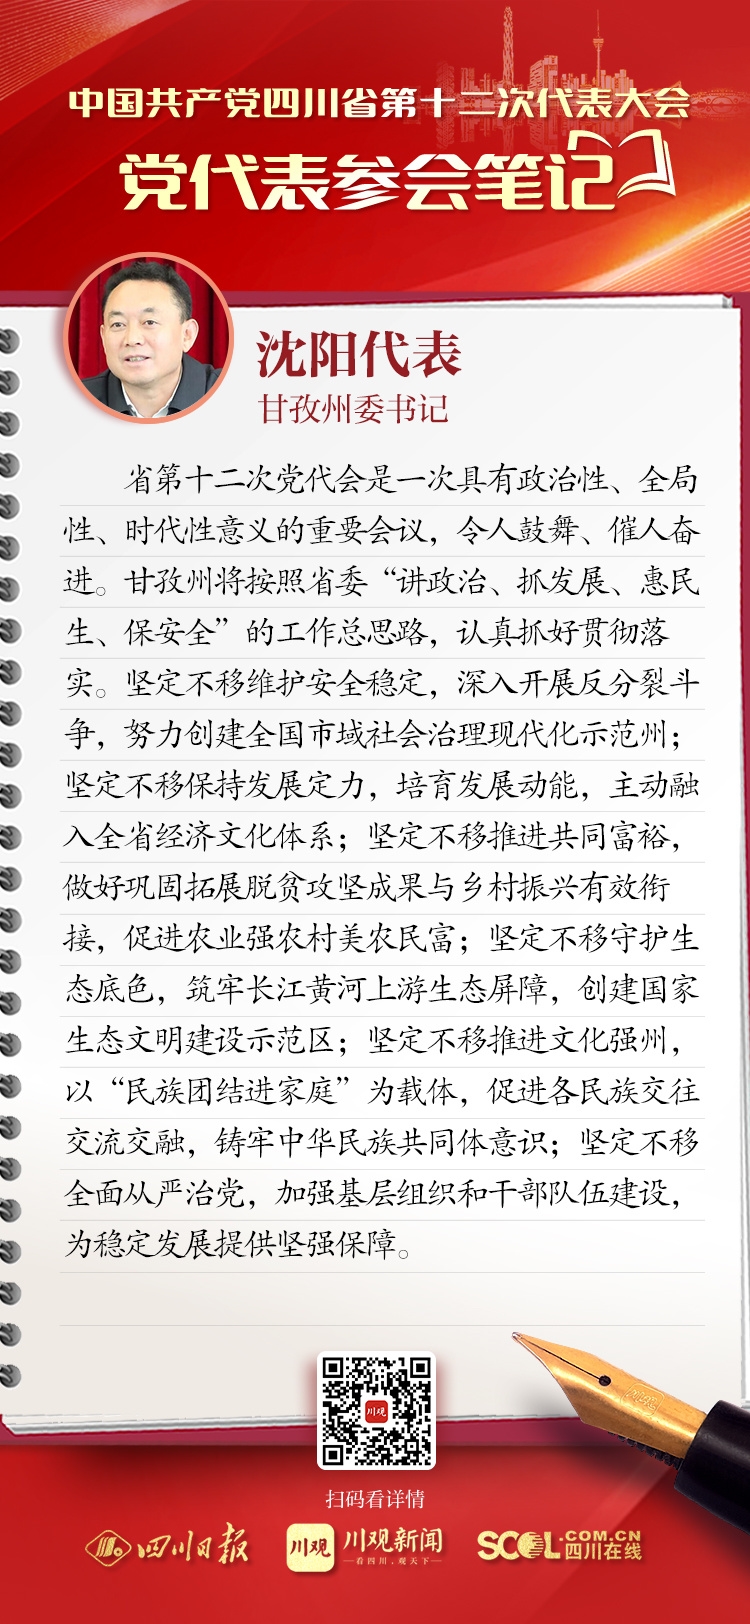 中国共产党四川省第十二次代表大会
党代表参会笔记
沈阳代表
甘孜州委书记
省第十二次党代会是一次具有政治性、全局
性、时代性意义的重要会议，令人鼓舞、催人奋
进。甘孜州将按照省委“讲政治、抓发展、惠民
生、保安全”的工作总思路，认真抓好贯彻落
实。坚定不移维护安全稳定，深入开展反分裂斗
争，努力创建全国市域社会治理现代化示范州；
坚定不移保持发展定力，培育发展动能，主动融
入全省经济文化体系；坚定不移推进共同富裕，
做好巩固拓展脱贫攻坚成果与乡村振兴有效衔
接，促进农业强农村美农民富；坚定不移守护生
态底色，筑牢长江黄河上游生态屏障，创建国家
生态文明建设示范区；坚定不移推进文化强州，
以“民族团结进家庭”为载体，促进各民族交往
交流交融，铸牢中华民族共同体意识；坚定不移
全面从严治党，加强基层组织和干部队伍建设，
为稳定发展提供坚强保障。
川观
扫码看详情
四川日报
川观
川观新闻
看四川，观天下
SCOL.COM.CN
四川在线